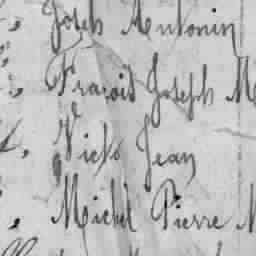 Joseph Antonin
François Joseph M
Jean
Michel Pierre